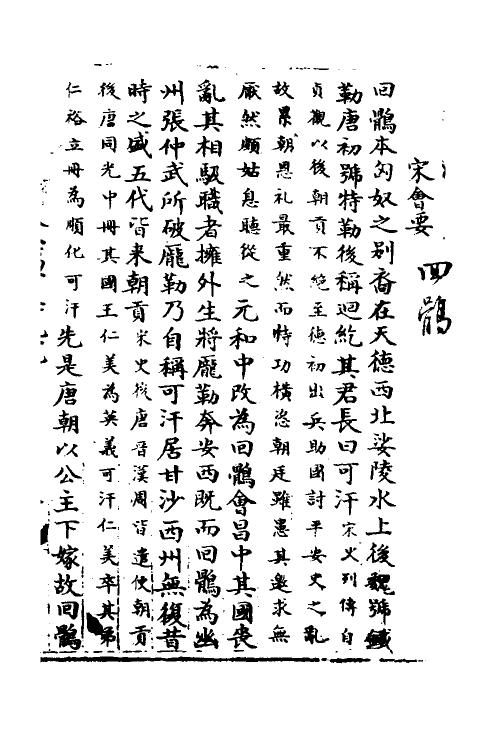 宋會要
回鶻
回鶻本匈奴之别裔在天德西北娑陵水上後魏號鐵
勒唐初號特勒後稱迴紇其君長曰可汗宋史列傳自
貞觀以後朝貢不絶至德初出兵助國討平安史之亂
故累朝恩礼最重然而恃功橫恣朝廷雖患其邀求無
厭然頗姑息聽從之元和中改為回鶻會昌中其國喪
亂其相馺職者擁外生將龐勒奔安西既而回鶻為幽
州張仲武所破龐勒乃自稱可汗居甘沙西州無復昔
時之盛五代皆来朝貢宋史後唐晋漢周皆遣使朝貢
後唐同光中冊其國王仁美為英義可汗仁美卒其弟
仁裕立冊為順化可汗先是唐朝以公主下嫁故回鶻